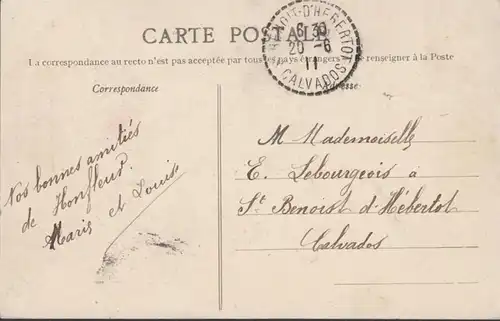 CARTE POSTALE
La correspondance au recto n'est pas acceptée par tous les pays étrangers se renseigner à la Poste
Correspondance
Adresse:
BENOIT-D'HEBERTOT
6 30
20 -6
11
CALVADOS
Nos bonnes amitiés
de Honfleur.
Marie et Louis
M Mademoiselle
E. Lebourgeois a
St Benoist d'Hébertot
Calvados